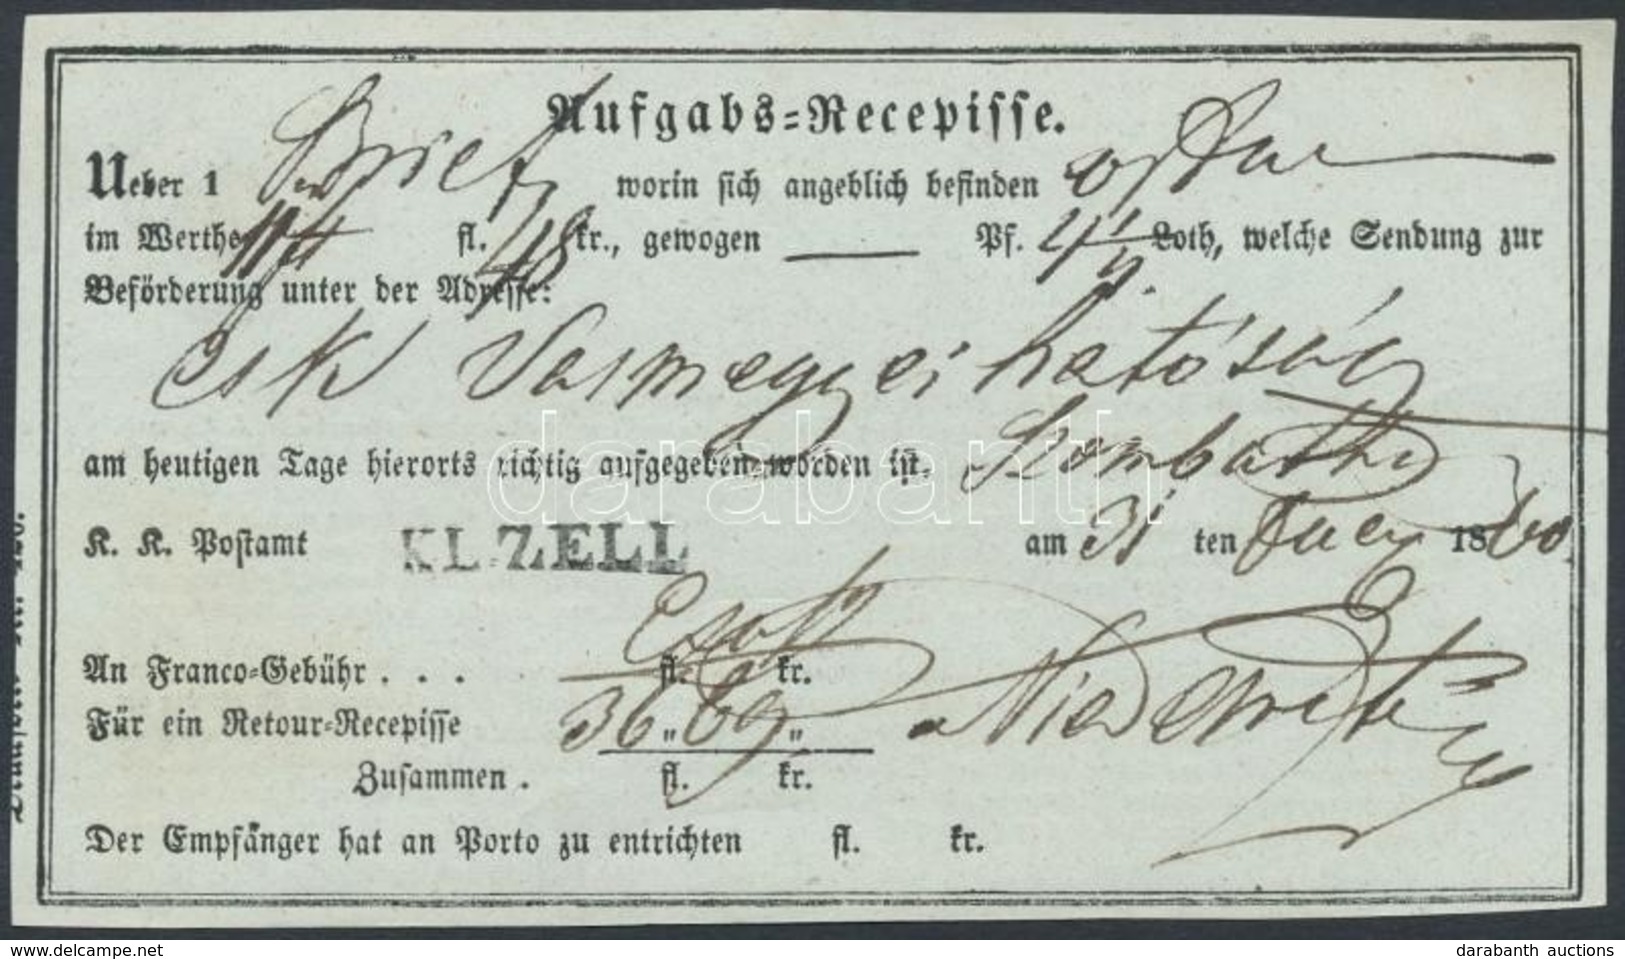 Aufgabs=Recepisse.
Ueber 1 Brief worin sich angeblich befinden
im Werthe fl. 48 kr., gewogen — Pf. Loth, welche Sendung zur
Beförderung unter der Adresse:
Csk Vasmegyei hatóság
am heutigen Tage hierorts richtig aufgegeben worden ist. Szombathe
darabanth
K. K. Postamt KL. ZELL am 31 ten 1860
An Franco=Gebühr . . . fl. kr.
Für ein Retour=Recepisse 36 " "
Zusammen . fl. kr.
Der Empfänger hat an Porto zu entrichten fl. kr.
www.delcampe.net
darabanth auctions